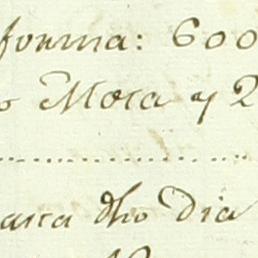 forma: 600
o Mora y 2
asta dho Dia